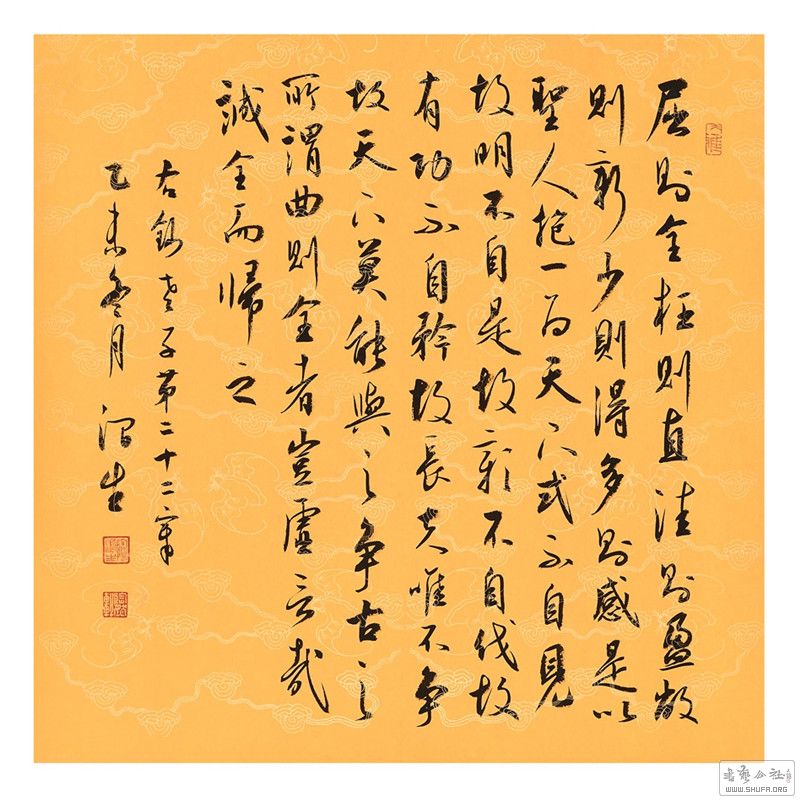 屈則全枉則直洼則盈敝
則新少則得多則感是以
聖人抱一為天下式不自見
故明不自是故彰不自伐故
有功不自矜故長夫唯不争
故天下莫能與之争古之
所謂曲則全者豈虛言哉
誠全而歸之
右錄老子第二十二章
乙未冬月
書藝公社
WWW.SHUFA.ORG